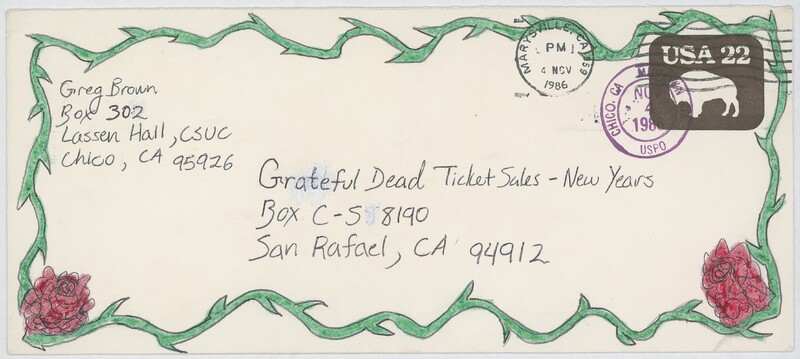 Greg Brown
Box 302
Lassen Hall, CSUC
Chico, CA 95926
MARYSVILLE, CA 959
PM
4 NOV
1986
USA 22
CHICO, CA
NOV
4
USPO
Grateful Dead Ticket Sales - New Years
Box C-S 8190
San Rafael, CA 94912